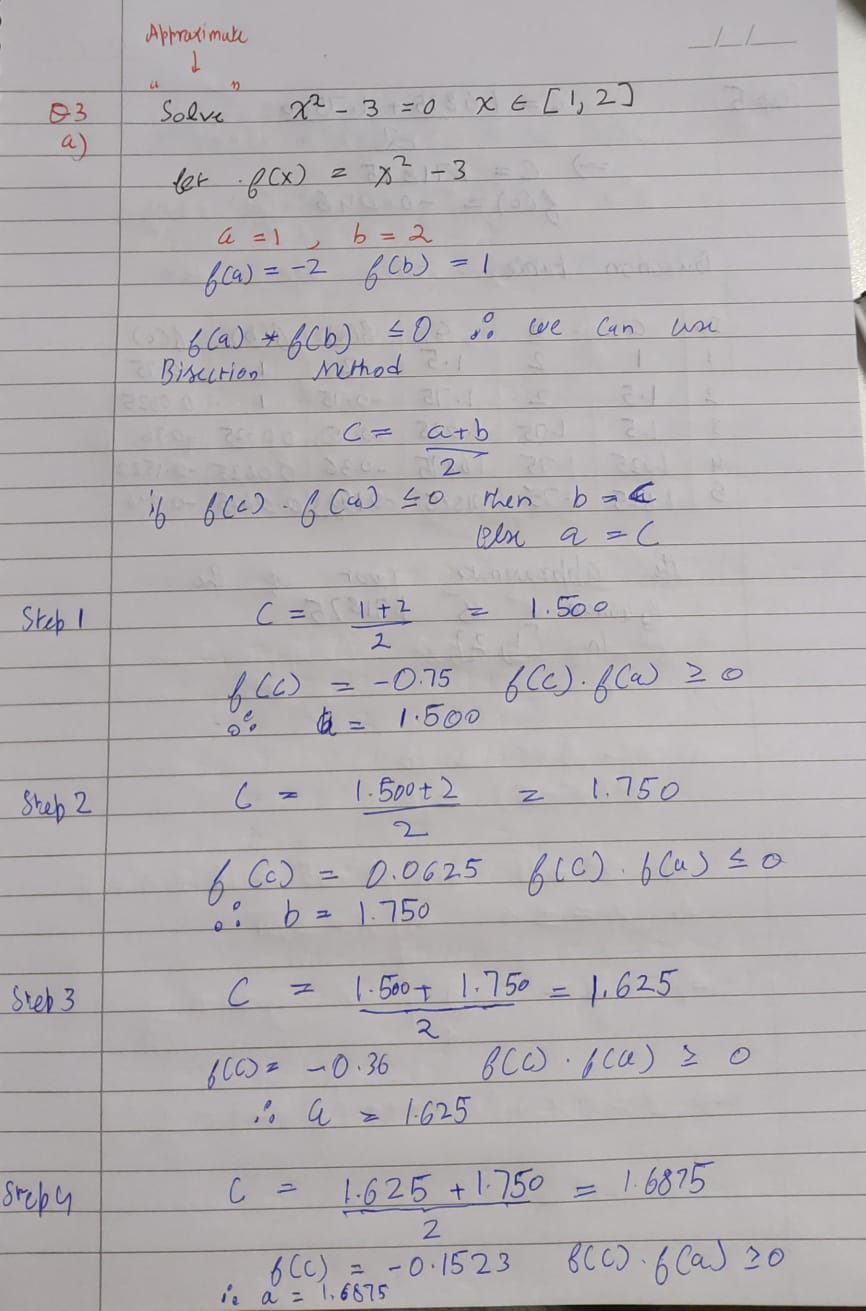 Approximate
↓
" "
_/_/_
Q3 Solve x² - 3 = 0 x ∈ [1, 2]
a)
let f(x) = x² - 3
a = 1 , b = 2
f(a) = -2 f(b) = 1
f(a) * f(b) ≤ 0 ∴ we can use
Bisection Method
C = a+b/2
if f(c) . f(a) ≤ 0 then b = c
else a = C
Step 1 C = 1+2/2 = 1.500
f(c) = -0.75 f(c) . f(a) ≥ 0
∴ a = 1.500
Step 2 C = 1.500+2/2 = 1.750
f(c) = 0.0625 f(c) . f(a) ≤ 0
∴ b = 1.750
Step 3 C = 1.500+ 1.750/2 = 1.625
f(c) = -0.36 f(c) . f(a) ≥ 0
∴ a = 1.625
Step 4 C = 1.625 + 1.750/2 = 1.6875
f(c) = -0.1523 f(c) . f(a) ≥ 0
∴ a = 1.6875